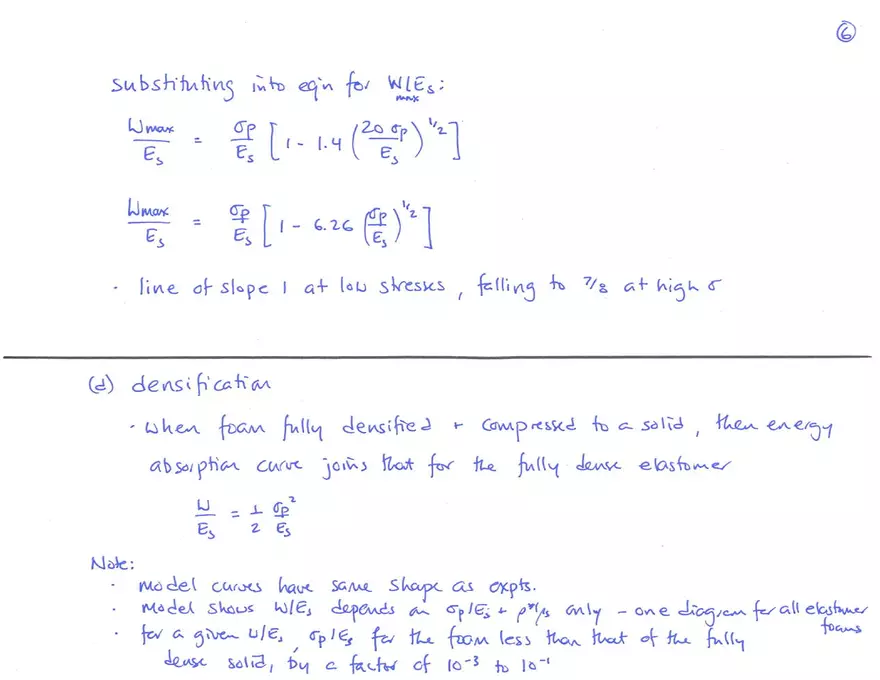 6
substituting into eq'n for Wmax/Es:
Wmax/Es = σp/Es [1 - 1.4 (20 σp/Es)^1/2]
Wmax/Es = σp/Es [1 - 6.26 (σp/Es)^1/2]
· line of slope 1 at low stresses, falling to 7/8 at high σ
(d) densification
· when foam fully densified + compressed to a solid, then energy
absorption curve joins that for the fully dense elastomer
W/Es = 1/2 σp²/Es
Note:
· model curves have same shape as expts.
· model shows W/Es depends on σp/Es + ρ*/ρs only - one diagram for all elastomer
foams
· for a given W/Es, σp/Es for the foam less than that of the fully
dense solid, by a factor of 10⁻³ to 10⁻¹